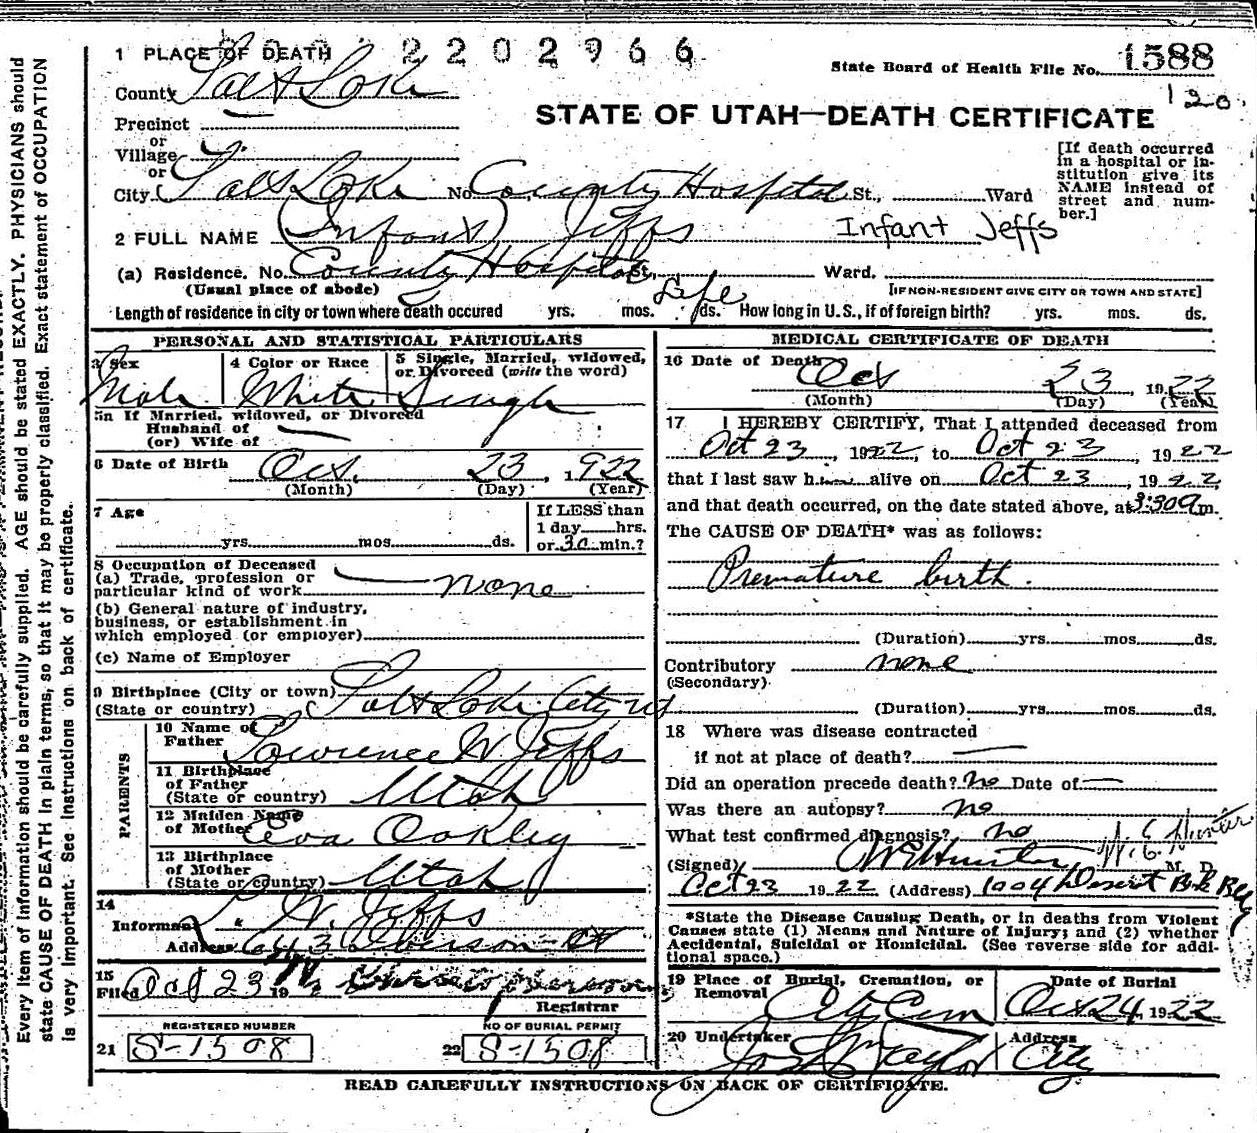 2202966
1 PLACE OF DEATH
State Board of Health File No. 1588
County Salt Lake
120.
STATE OF UTAH—DEATH CERTIFICATE
Precinct
or
Village
or
City Salt Lake No. County Hospital St., Ward
[If death occurred in a hospital or in-
stitution give its
NAME instead of
street and num-
ber.]
2 FULL NAME (Infant) Jeffs Infant Jeffs
(a) Residence. No. County Hospital St., Ward.
(Usual place of abode) [IF NON-RESIDENT GIVE CITY OR TOWN AND STATE]
Length of residence in city or town where death occured yrs. mos. Life ds. How long in U. S., if of foreign birth? yrs. mos. ds.
PERSONAL AND STATISTICAL PARTICULARS
3 Sex 4 Color or Race 5 Single, Married, widowed,
or Divorced (write the word)
Male White Single
5a If Married, widowed, or Divorced
Husband of
(or) Wife of
6 Date of Birth Oct. 23, 1922
(Month) (Day) (Year)
7 Age If LESS than
1 day hrs.
yrs. mos. ds. or 30 min.?
8 Occupation of Deceased
(a) Trade, profession or
particular kind of work none
(b) General nature of industry,
business, or establishment in
which employed (or employer)
(c) Name of Employer
9 Birthplace (City or town)
(State or country) Salt Lake City Ut
PARENTS
10 Name of
Father Lawrence W Jeffs
11 Birthplace
of Father
(State or country) Utah
12 Maiden Name
of Mother Eva Oakley
13 Birthplace
of Mother
(State or country) Utah
14
Informant L. W. Jeffs
Address
15
Filed Oct 23 19
Registrar
REGISTERED NUMBER NO OF BURIAL PERMIT
21 S-1508 22 S-1508
MEDICAL CERTIFICATE OF DEATH
16 Date of Death Oct 23, 1922
(Month) (Day) (Year)
17 I HEREBY CERTIFY, That I attended deceased from
Oct 23, 1922, to Oct 23, 1922
that I last saw him alive on Oct 23, 1922,
and that death occurred, on the date stated above, at 3:30a m.
The CAUSE OF DEATH* was as follows:
Premature birth.
(Duration) yrs. mos. ds.
Contributory none
(Secondary)
(Duration) yrs. mos. ds.
18 Where was disease contracted
if not at place of death?
Did an operation precede death? no Date of —
Was there an autopsy? no
What test confirmed diagnosis? no
(Signed) W E Hunter W. E. Hunter M. D.
Oct 23 1922 (Address) 1004 Deseret Bk Bldg
*State the Disease Causing Death, or in deaths from Violent
Causes state (1) Means and Nature of Injury; and (2) whether
Accidental, Suicidal or Homicidal. (See reverse side for addi-
tional space.)
19 Place of Burial, Cremation, or
Removal Date of Burial
City Cem Oct 24, 1922
20 Undertaker Address
Jos Wm Taylor City
READ CAREFULLY INSTRUCTIONS ON BACK OF CERTIFICATE.
Every item of information should be carefully supplied. AGE should be stated EXACTLY. PHYSICIANS should
state CAUSE OF DEATH in plain terms, so that it may be properly classified. Exact statement of OCCUPATION
is very important. See instructions on back of certificate.